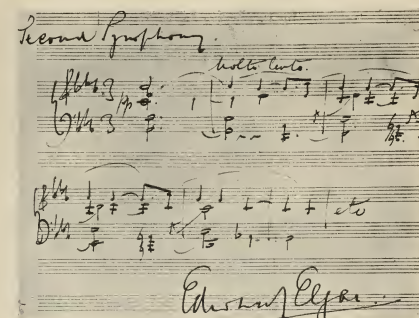 Second Symphony.
Molto lento.
3
pp
3
etc
Edward Elgar.